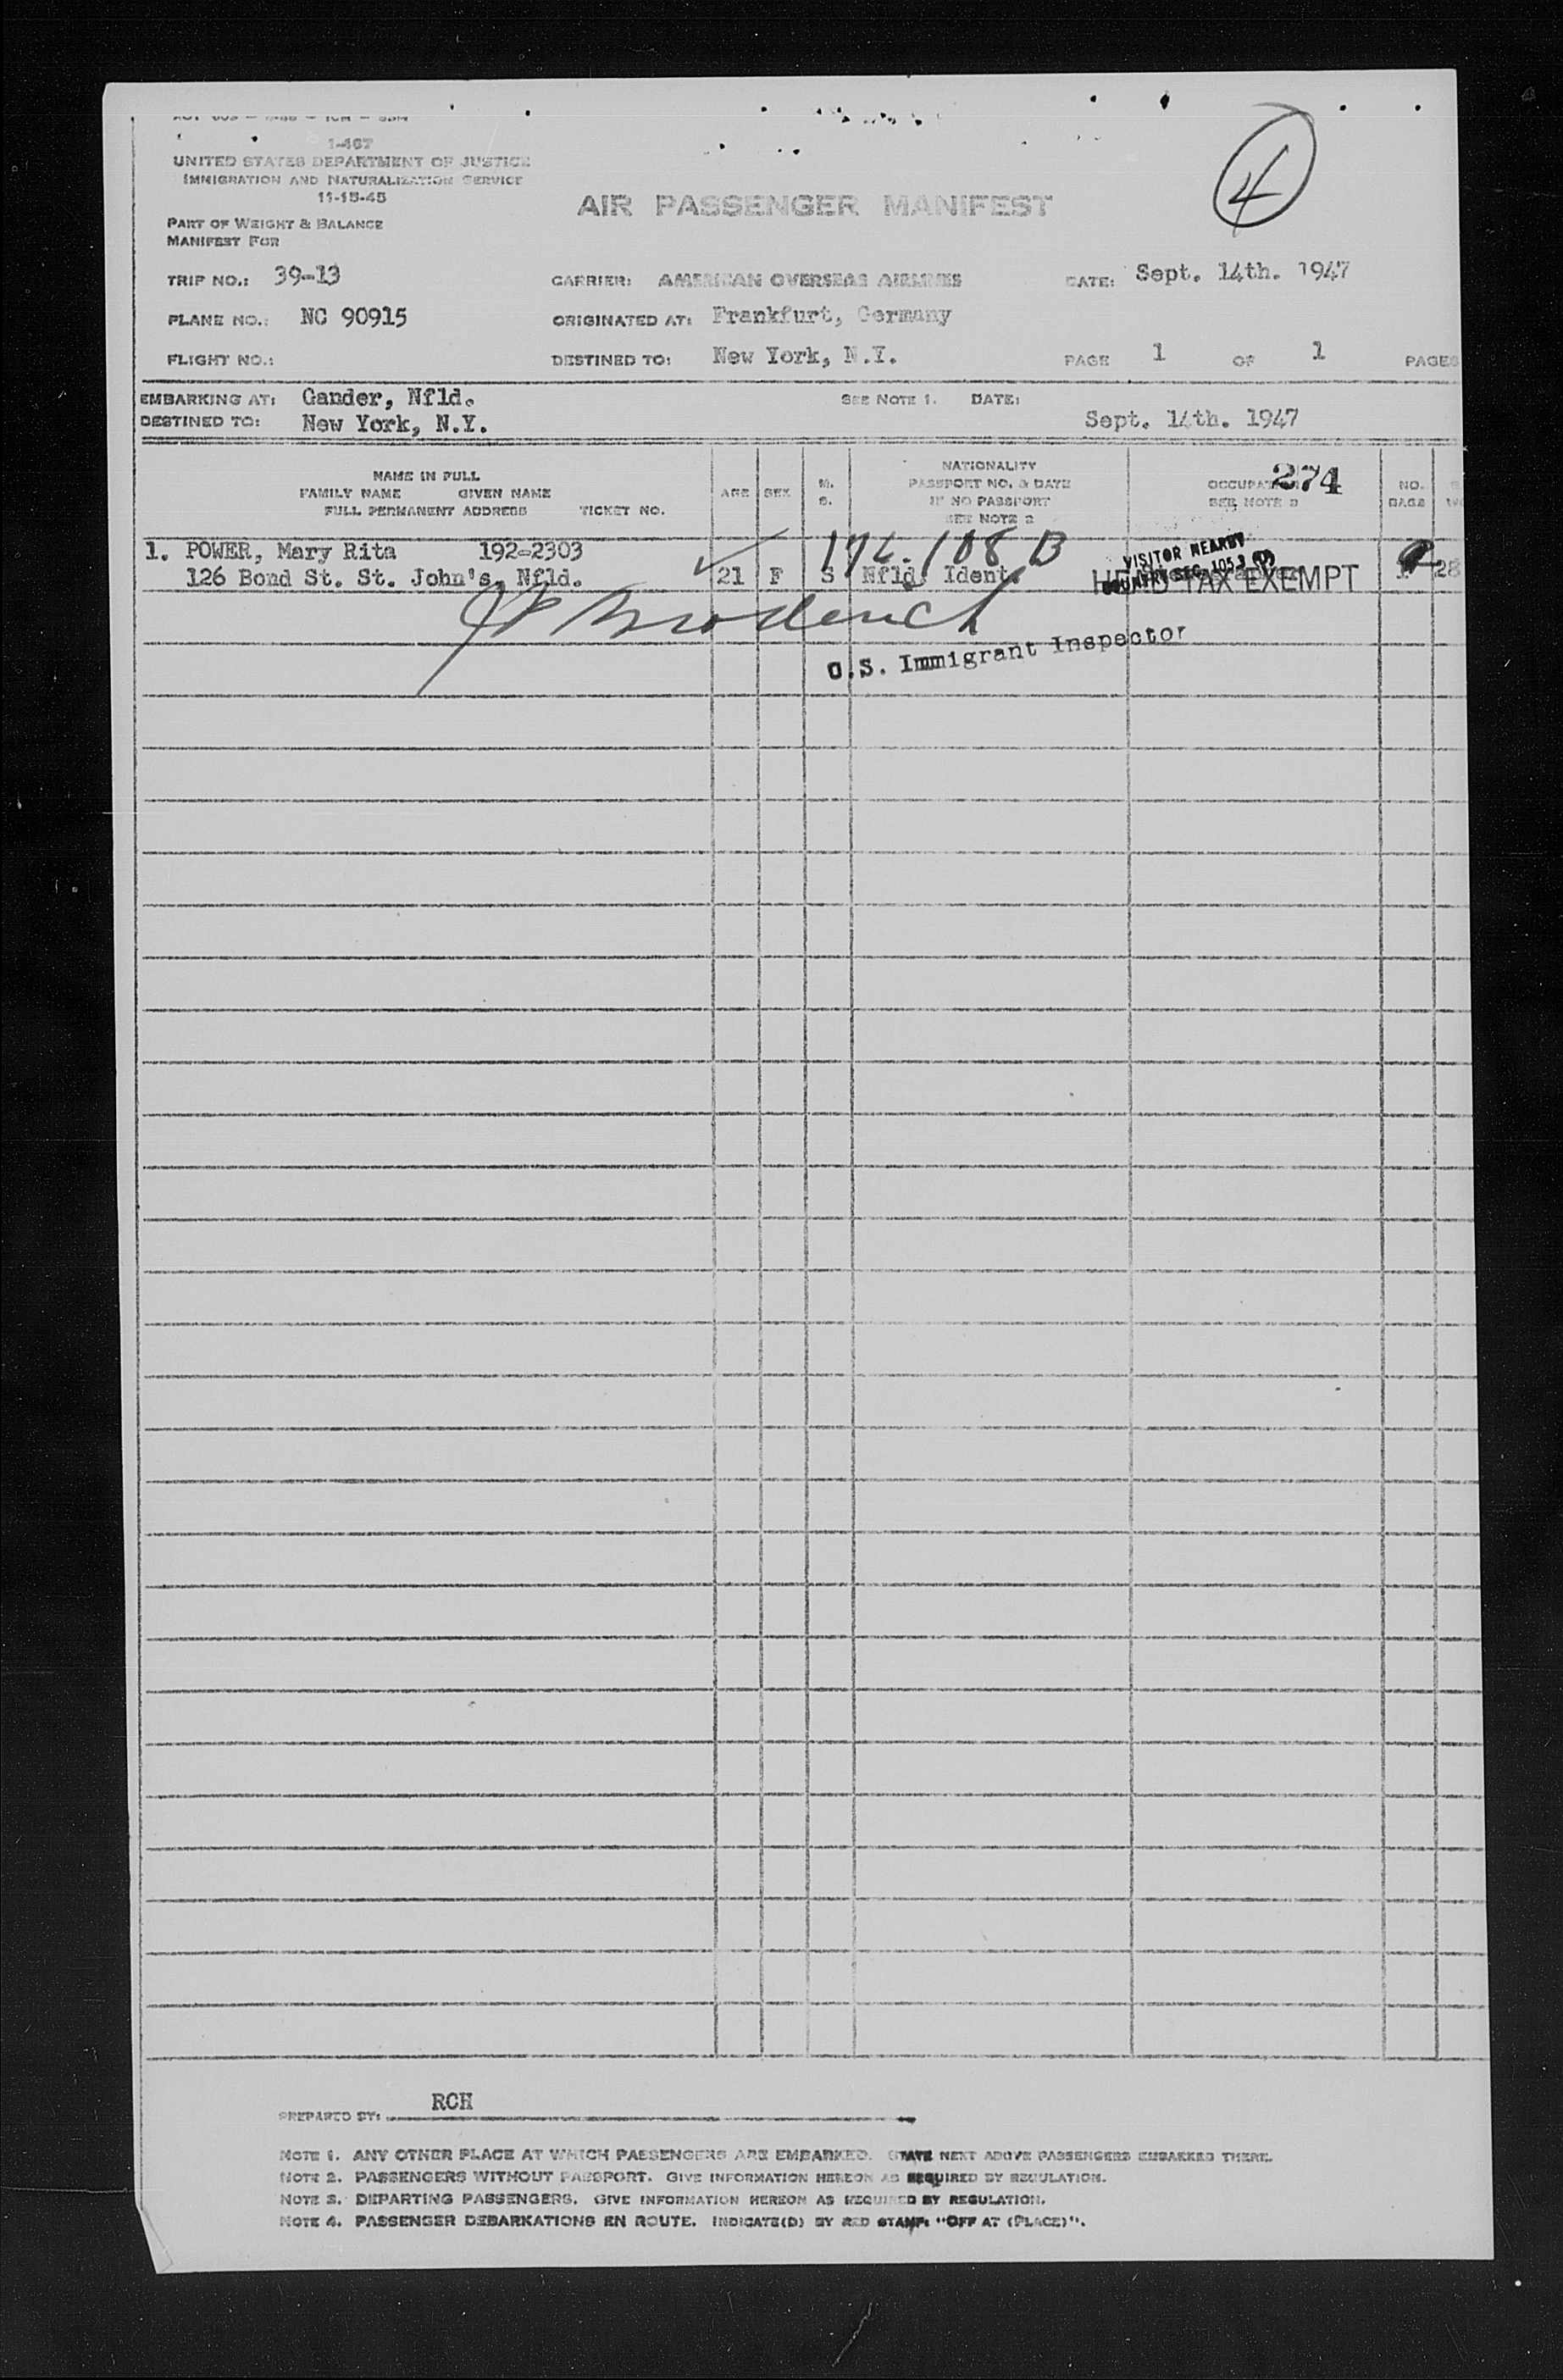 4
1-467
UNITED STATES DEPARTMENT OF JUSTICE
IMMIGRATION AND NATURALIZATION SERVICE
11-15-45
AIR PASSENGER MANIFEST
PART OF WEIGHT & BALANCE
MANIFEST FOR
TRIP NO.: 39-13 CARRIER: AMERICAN OVERSEAS AIRLINES DATE: Sept. 14th. 1947
PLANE NO.: NC 90915 ORIGINATED AT: Frankfurt, Germany
FLIGHT NO.: DESTINED TO: New York, N.Y. PAGE 1 OF 1 PAGES
EMBARKING AT: Gander, Nfld. SEE NOTE 1. DATE:
DESTINED TO: New York, N.Y. Sept. 14th. 1947
NAME IN FULL
FAMILY NAME GIVEN NAME
FULL PERMANENT ADDRESS TICKET NO.
AGE SEX M. S.
NATIONALITY
PASSPORT NO. & DATE
IF NO PASSPORT
SEE NOTE 2
274
SEE NOTE 2
NO. BAGS
1. POWER, Mary Rita 192-2303
126 Bond St. St. John's, Nfld. 21 F S Nfld. Ident. 28
108 B
VISITOR NEARBY
COUNTRY SEC.
HEAD TAX EXEMPT
U.S. Immigrant Inspector
PREPARED BY: RCH
NOTE 1. ANY OTHER PLACE AT WHICH PASSENGERS ARE EMBARKED. STATE NEXT ABOVE PASSENGERS EMBARKED THERE.
NOTE 2. PASSENGERS WITHOUT PASSPORT. GIVE INFORMATION HEREON AS REQUIRED BY REGULATION.
NOTE 3. DEPARTING PASSENGERS. GIVE INFORMATION HEREON AS REQUIRED BY REGULATION.
NOTE 4. PASSENGER DEBARKATIONS EN ROUTE. INDICATE(D) BY RED STAMP: "OFF AT (PLACE)".